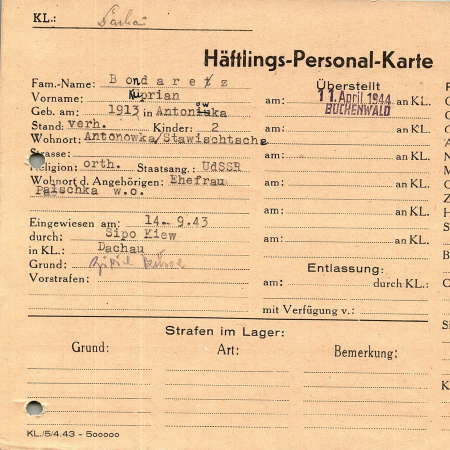 KL.: Dachau
Häftlings-Personal-Karte
Fam.-Name: Bondaretz
Vorname: Kuprian
Geb. am: 1913 in Antonowka
Stand: verh. Kinder: 2
Wohnort: Antonowka/Stawischtscha
Strasse:
Religion: orth. Staatsang.: UdSSR
Wohnort d. Angehörigen: Ehefrau
Paischka w.o.
Eingewiesen am: 14.9.43
durch: Sipo Kiew
in KL.: Dachau
Grund:
Vorstrafen:
Überstellt
am: 11. April 1944 an KL.
BUCHENWALD
am: an KL.
am: an KL.
am: an KL.
am: an KL.
am: an KL.
Entlassung:
am: durch KL.:
mit Verfügung v.:
Strafen im Lager:
Grund: Art: Bemerkung:
KL./5/4.43 - 500000